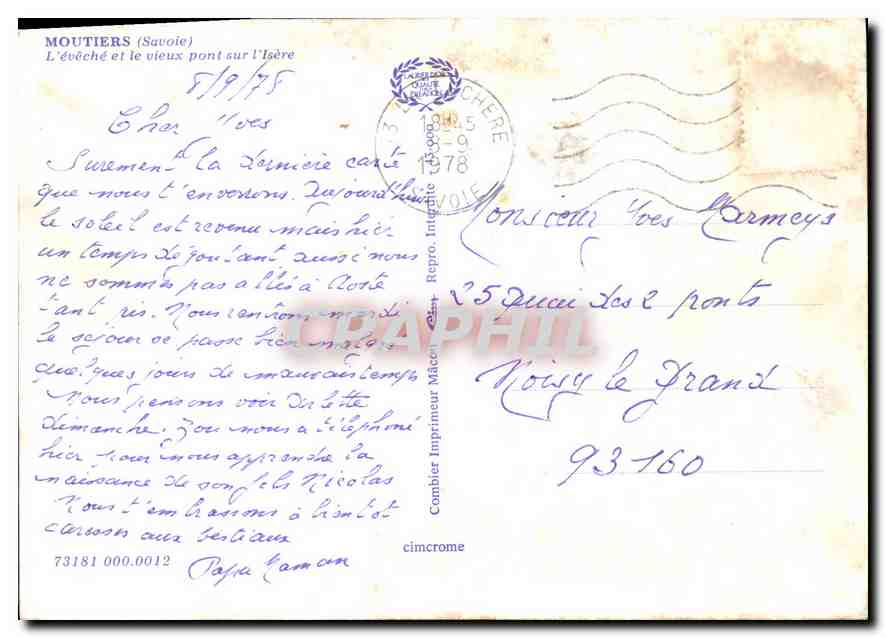 MOUTIERS (Savoie)
L'évêché et le vieux pont sur l'Isère
8/9/78
Cher Yves
Surement la dernière carte
que nous t'enverrons. Aujourd'hui
le soleil est revenu mais hier
un temps dégoutant aussi nous
ne sommes pas allés à Aoste
tant pis. Nous rentrons mardi
le séjour se passe bien malgré
quelques jours de mauvais temps
Nous pensons voir Arlette
dimanche. Zou nous a téléphoné
hier pour nous apprendre la
naissance de son fils Nicolas
Nous t'embrassons à bientôt
caresses aux bestiaux
Papa Maman
73181 000.0012
Combier Imprimeur Mâcon Repro. Interdite
cimcrome
LAURIER D'OR
QUALITÉ
CRÉATION
18H45
8-9
1978
SAVOIE
Monsieur Yves Marmeys
25 Quai des 2 ponts
Noisy le Grand
93160
CPAPHIL